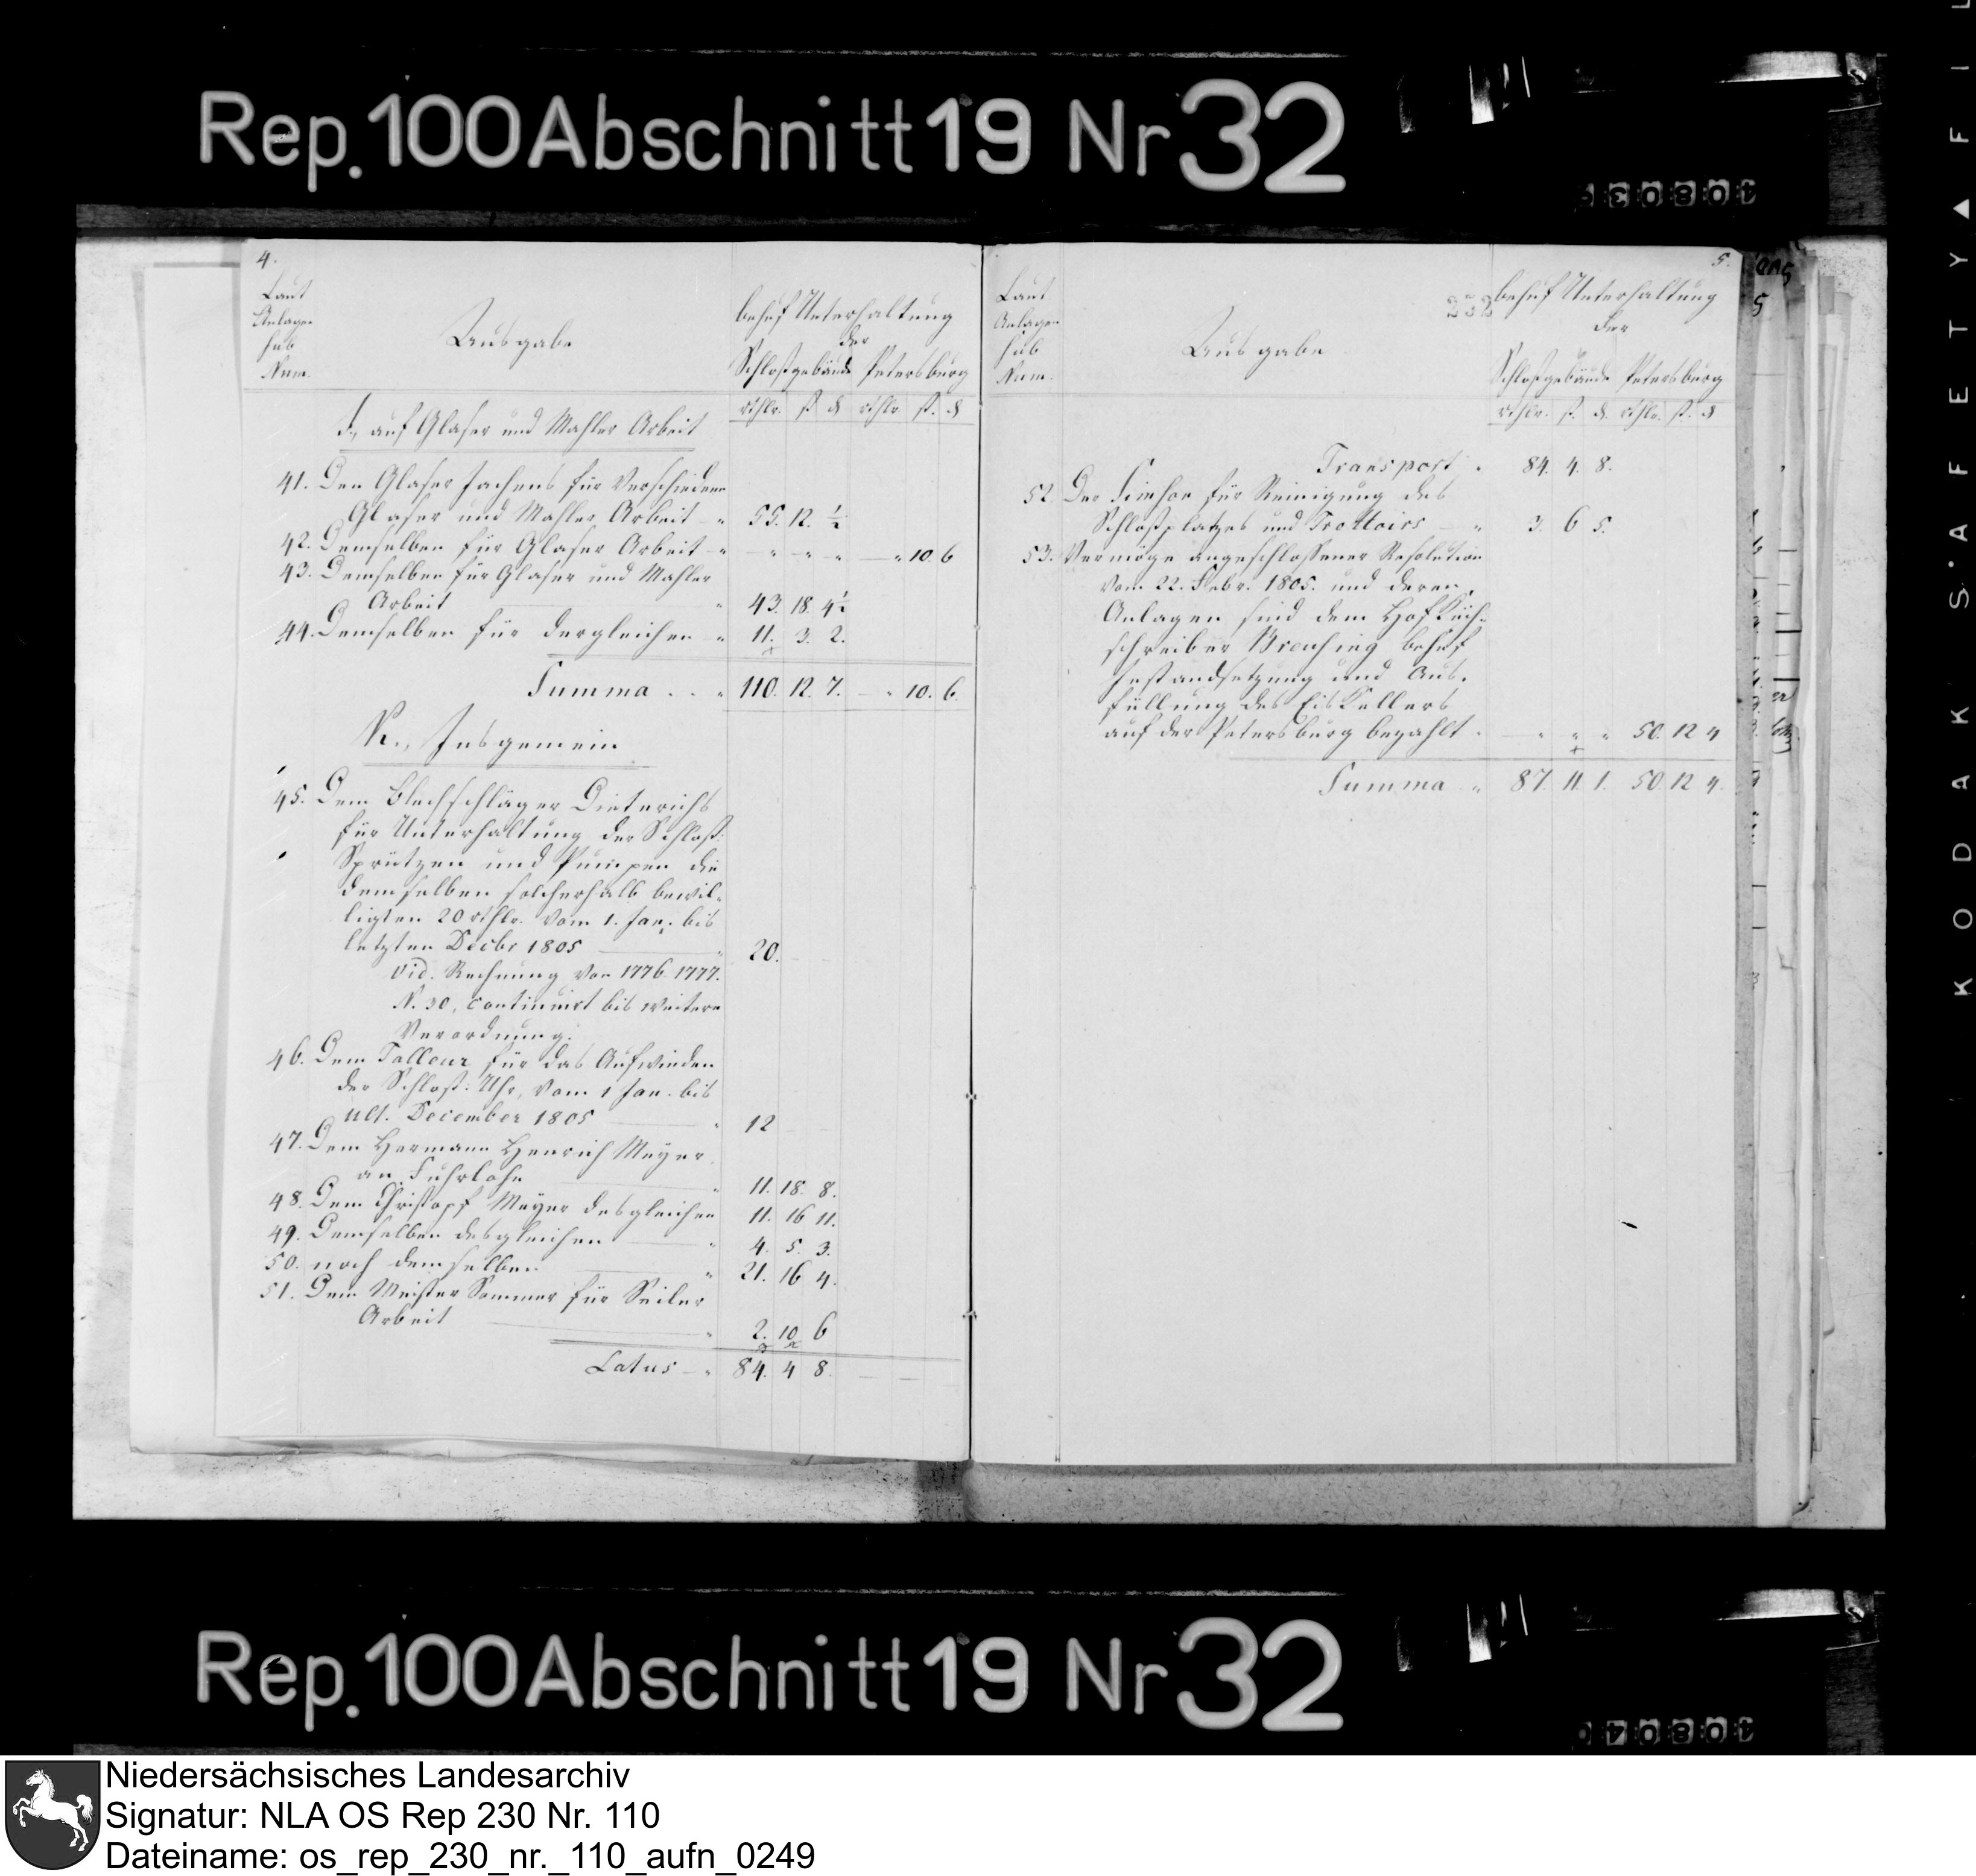 Rep. 100 Abschnitt 19 Nr 32
4.
Laut
Anlage
sub
Num.
Ausgabe
behuf Unterhaltung
der
Schloßgebäude Petersburg
rthlr. ß ₰ rthlr ß. ₰
J., auf Glaser und Mahler Arbeit
41. Den Glaser Jachens für verschiedene
Glaser und Mahler Arbeit 55. 12. ½
42. Demselben für Glaser Arbeit - " " " " — " 10. 6
43. Demselben für Glaser und Mahler
Arbeit " 43. 18. 4½
44. Demselben für dergleichen " 11. 3. 2.
Summa . . " 110. 12. 7. — " 10. 6.
K., Insgemein
45. Dem Blechschläger Dieterichs
für Unterhaltung der Schloß:
Sprützen und Pumpen die
demselben solcherhalb bewil-
ligten 20 rthlr. vom 1. Jan. bis
letzten Decbr 1805 20.
vid. Rechnung von 1776. 1777.
N. 30, continuirt bis weitere
Verordnung.
46. Dem Talleur für das Aufwinden
der Schloß: Uhr, vom 1 Jan. bis
ult. December 1805 12
47. Dem Hermann Henrich Meyer
an Fuhrlohn 11. 18. 8.
48. Dem Christoph Meyer desgleichen 11. 16 11.
49. Demselben desgleichen 4. 5. 3.
50. noch demselben 21. 16 4.
51. Dem Meister Sommer für Seiler
Arbeit 2. 10 6
Latus — " 84. 4 8.
5.
Laut
Anlage
sub
Num.
Ausgabe
behuf Unterhaltung
der
Schloßgebäude Petersburg
rthlr. ß. ₰. rthlr. ß. ₰
Transport . 84. 4. 8.
52. Der für Reinigung des
Schloßplatzes und Trottoirs — " 3. 6 5.
53. Vermöge angeschlossener Resolution
vom 22. Febr. 1805. und deren
Anlagen sind dem Hof Küch-
schreiber behuf
Instandsetzung und Aus-
füllung des Eiskellers
auf der Petersburg bezahlt " " " " 50. 12 4
Summa " 87. 11. 1. 50. 12 4.
KODAK SAFETY FIL
Rep. 100 Abschnitt 19 Nr 32
Niedersächsisches Landesarchiv
Signatur: NLA OS Rep 230 Nr. 110
Dateiname: os_rep_230_nr._110_aufn_0249